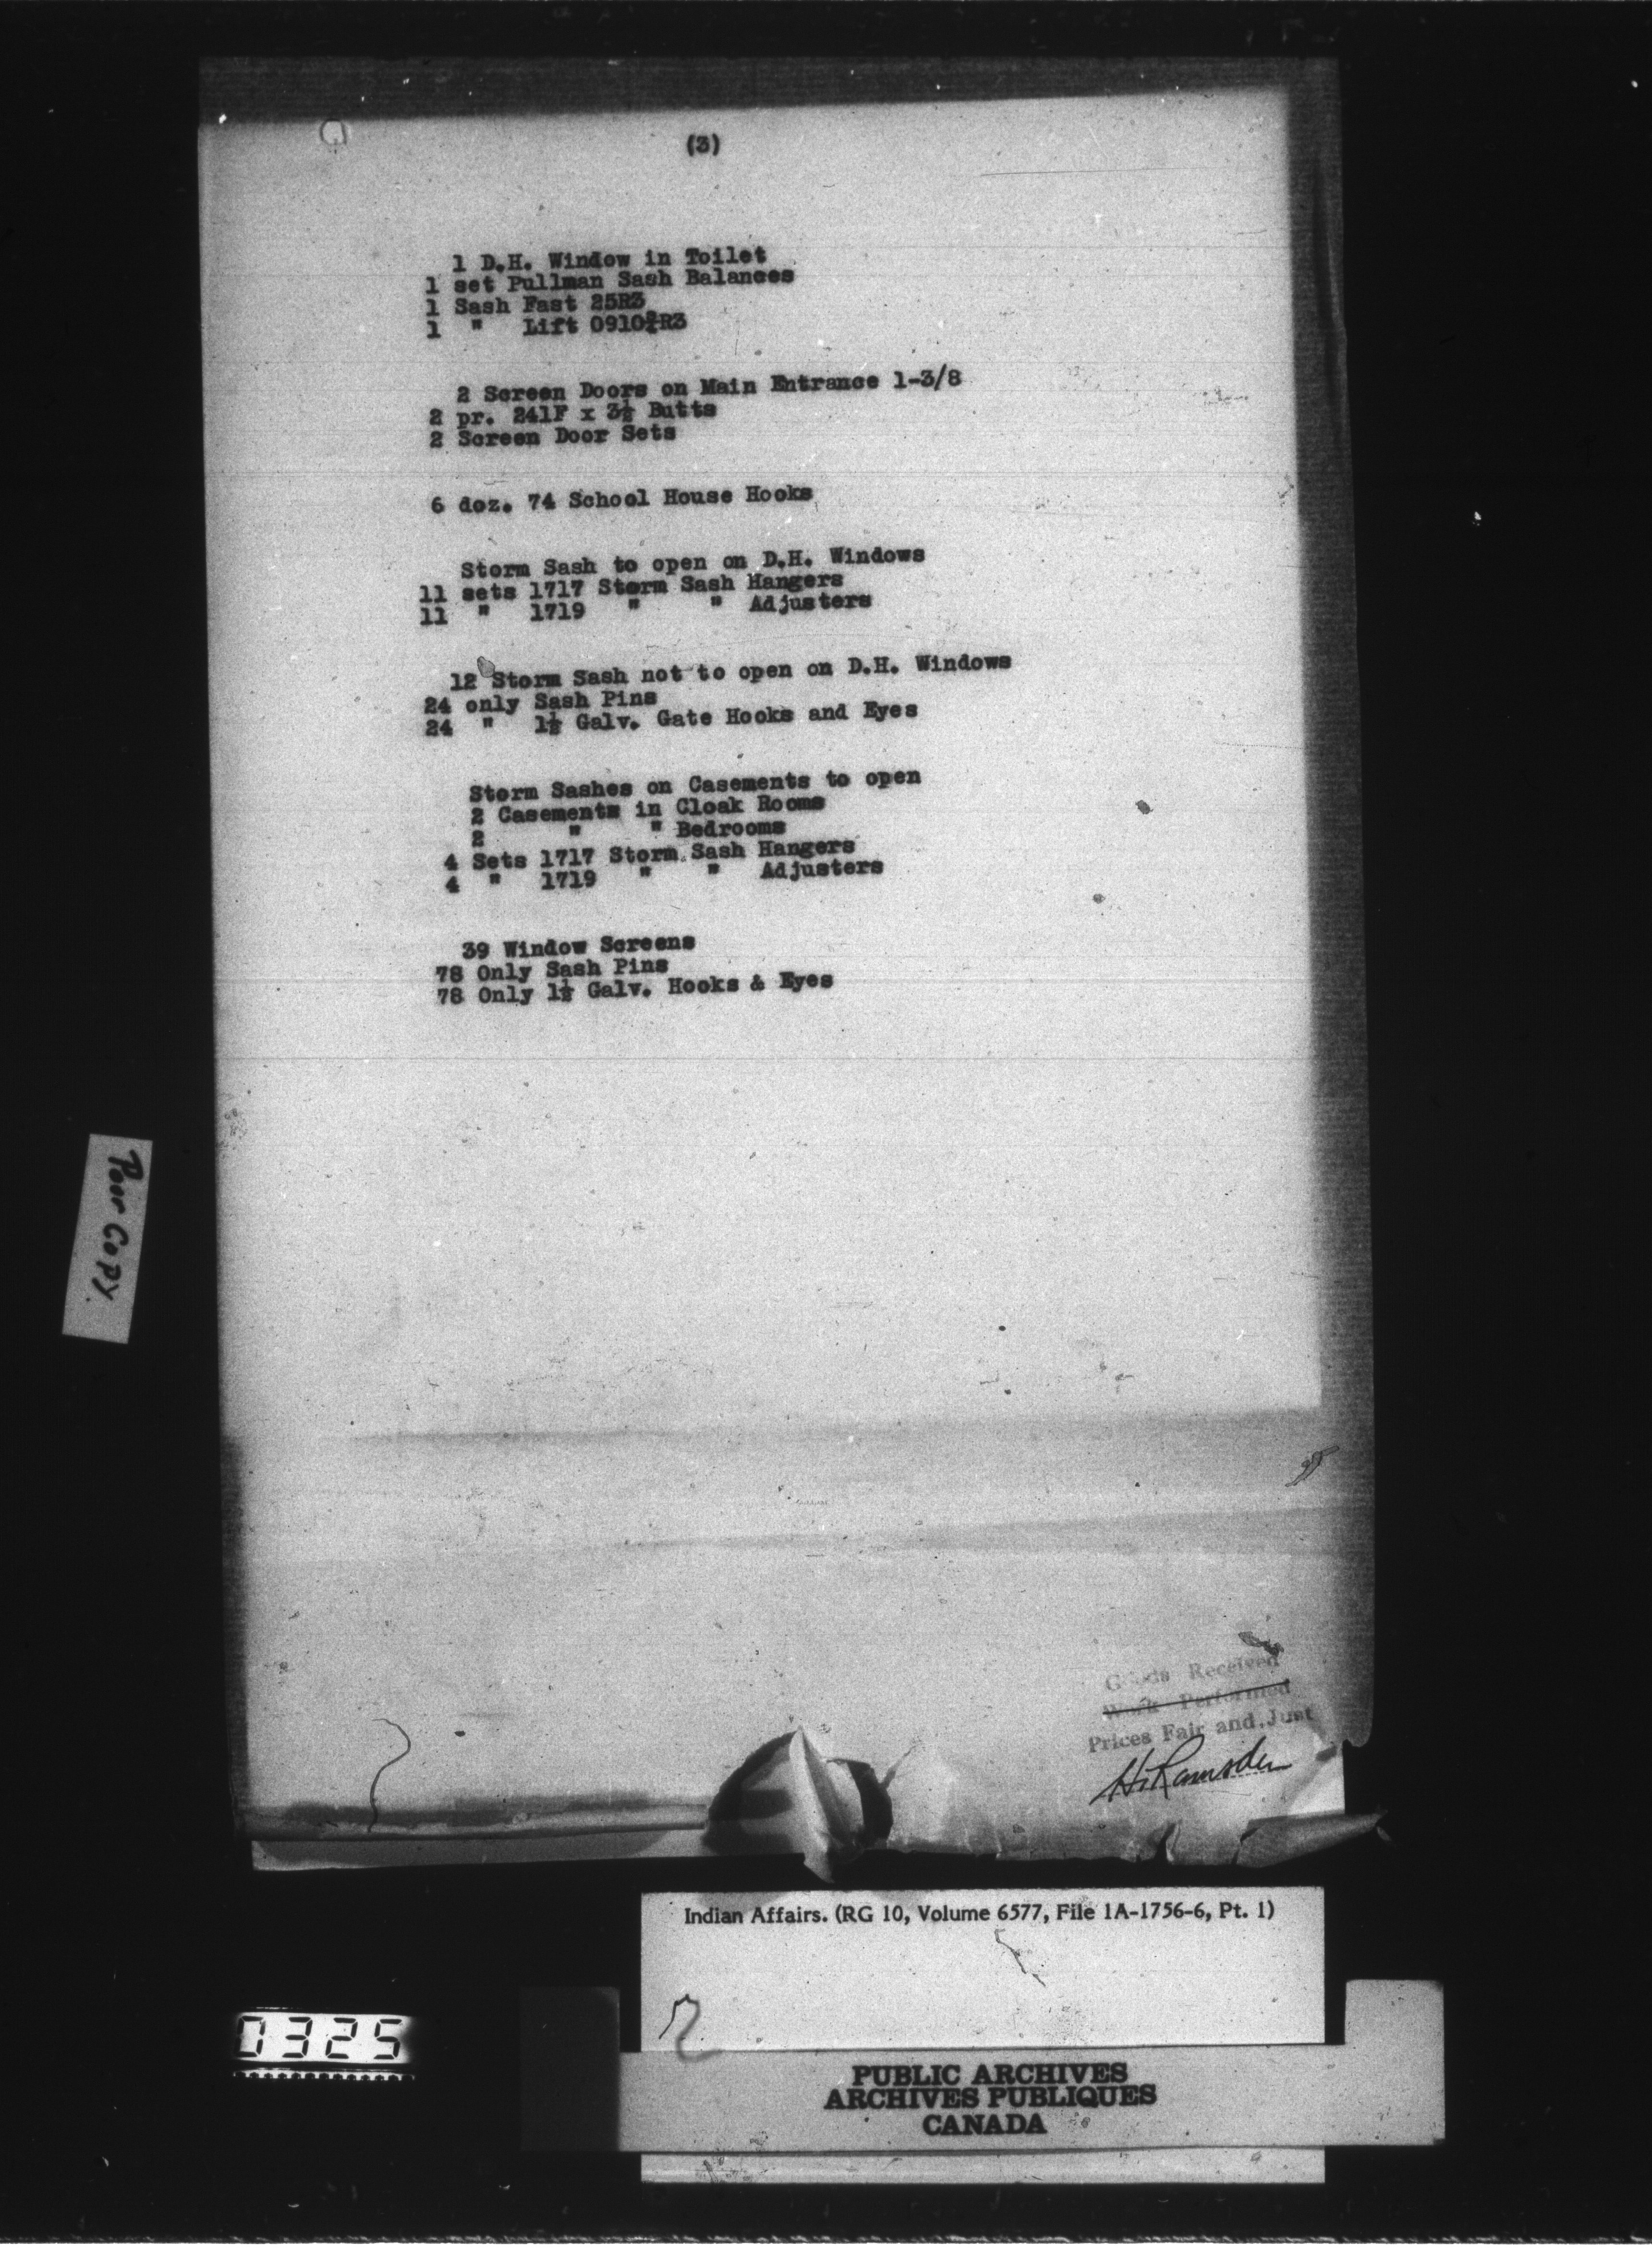 (3)
1 D.H. Window in Toilet
1 set Pullman Sash Balances
1 Sash Fast 25R3
1 " Lift 0910¾R3
2 Screen Doors on Main Entrance 1-3/8
2 pr. 241F x 3½ Butts
2 Screen Door Sets
6 doz. 74 School House Hooks
Storm Sash to open on D.H. Windows
11 sets 1717 Storm Sash Hangers
11 " 1719 " " Adjusters
12 Storm Sash not to open on D.H. Windows
24 only Sash Pins
24 " 1½ Galv. Gate Hooks and Eyes
Storm Sashes on Casements to open
2 Casements in Cloak Rooms
2 " " Bedrooms
4 Sets 1717 Storm Sash Hangers
4 " 1719 " " Adjusters
39 Window Screens
78 Only Sash Pins
78 Only 1½ Galv. Hooks & Eyes
Poor Copy.
Goods Received
Work Performed
Prices Fair and Just
H. Ramsden
Indian Affairs. (RG 10, Volume 6577, File 1A-1756-6, Pt. 1)
0325
PUBLIC ARCHIVES
ARCHIVES PUBLIQUES
CANADA